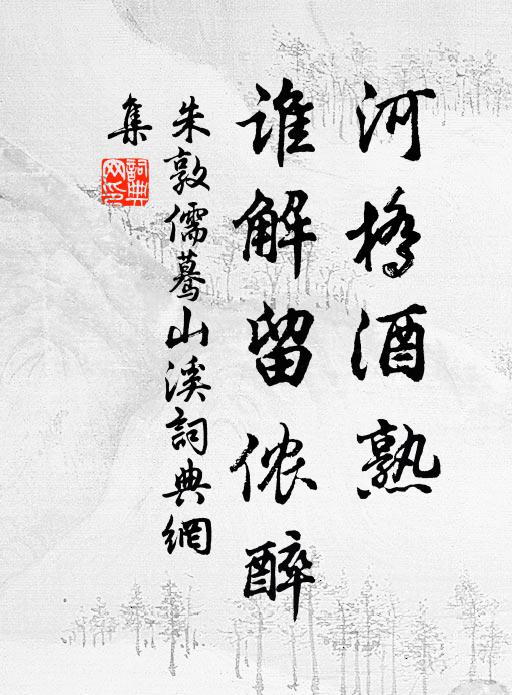 河桥酒熟
谁解留侬醉
朱敦儒驀山溪詞典網
集
詞典網